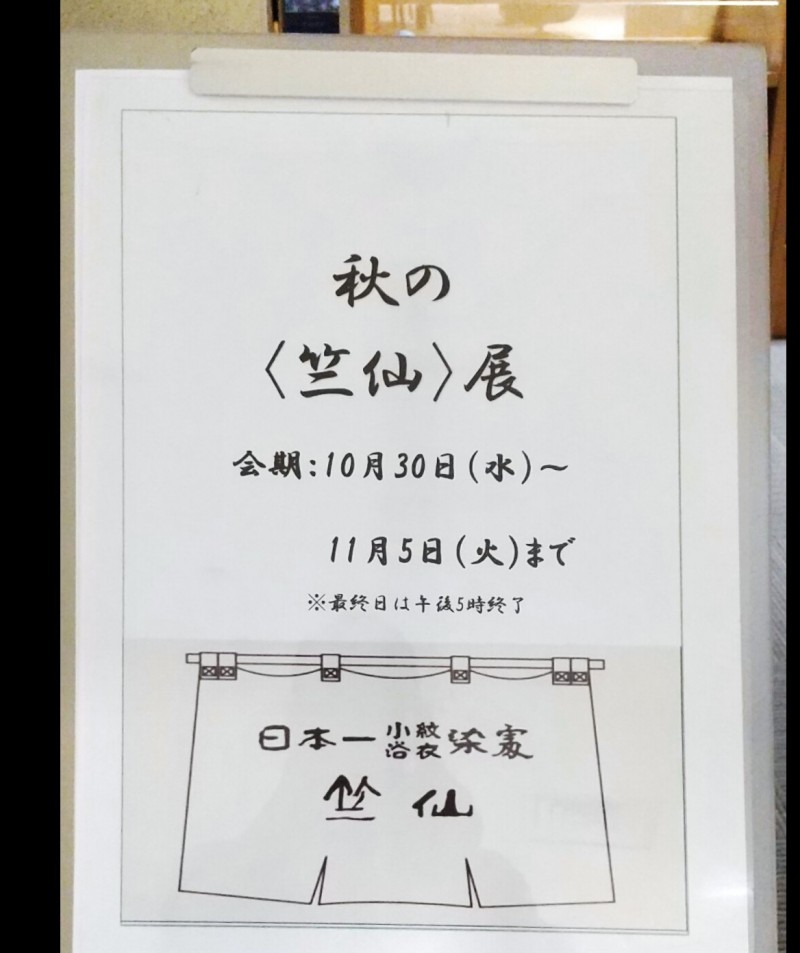 秋の
〈竺仙〉展
会期:10月30日(水)~
11月5日(火)まで
※最終日は午後5時終了
日本一小紋浴衣染處
竺仙